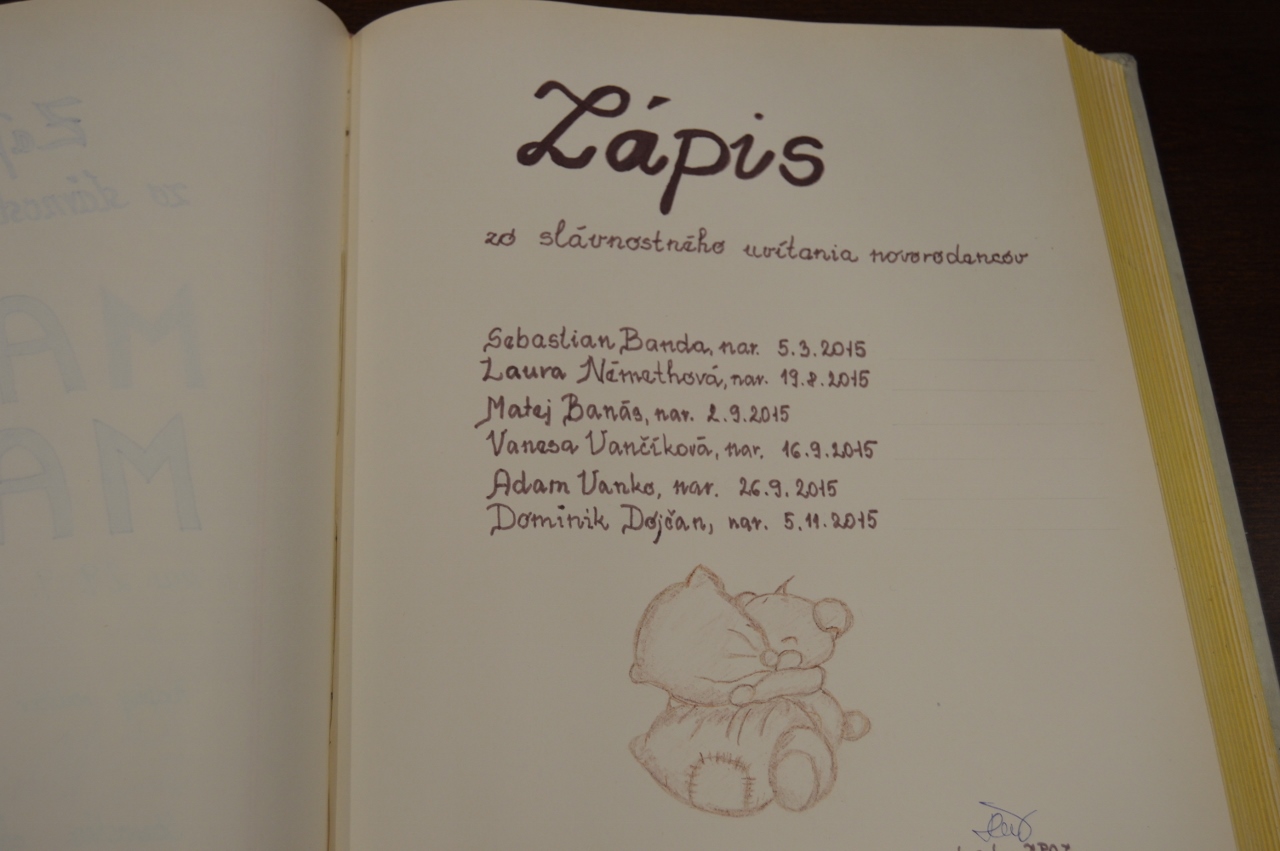 Zápis
zo slávnostného uvítania novorodencov
Sebastian Banda, nar. 5.3.2015
Laura Némethová, nar. 19.8.2015
Matej Banás, nar. 2.9.2015
Vanesa Vančíková, nar. 16.9.2015
Adam Vanko, nar. 26.9.2015
Dominik Dojčan, nar. 5.11.2015